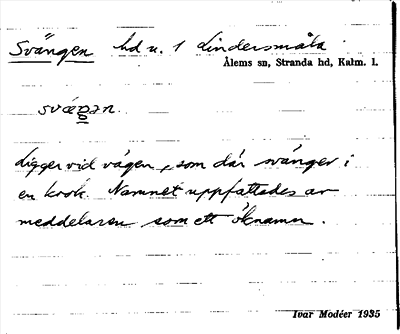 Svängen hd u. 1 Lindersmåla
Ålems sn, Stranda hd, Kalm. l.
Ligger vid vägen, som där svänger i
en krok. Namnet uppfattades av
meddelaren som ett öknamn.
Ivar Modéer 1935